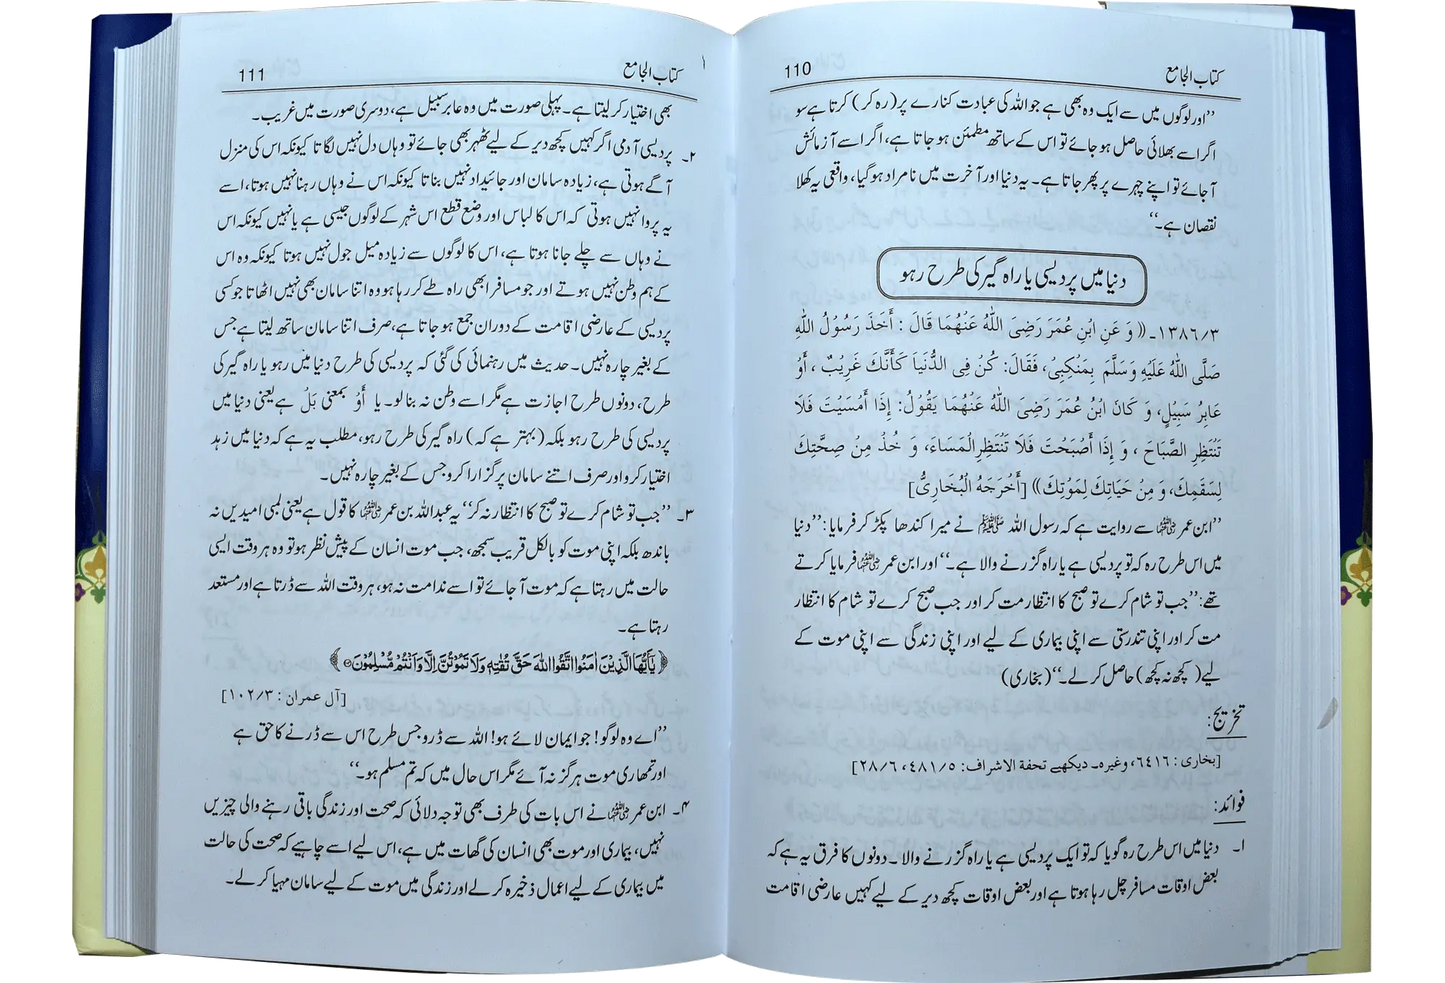 110
کتاب الجامع
’’اور لوگوں میں سے ایک وہ بھی ہے جو اللہ کی عبادت کنارے پر (رہ کر) کرتا ہے سو
اگر اسے بھلائی حاصل ہو جائے تو اس کے ساتھ مطمئن ہو جاتا ہے، اگر اسے آزمائش
آ جائے تو اپنے چہرے پر پھر جاتا ہے۔ یہ دنیا اور آخرت میں نامراد ہو گیا، واقعی یہ کھلا
نقصان ہے۔‘‘
دنیا میں پردیسی یا راہ گیر کی طرح رہو
۱۳۸۶/۳۔ (( وَ عَنِ ابْنِ عُمَرَ رَضِیَ اللّٰهُ عَنْهُمَا قَالَ : أَخَذَ رَسُوْلُ اللّٰهِ
صَلَّی اللّٰهُ عَلَيْهِ وَسَلَّمَ بِمَنْكِبِیْ، فَقَالَ: كُنْ فِی الدُّنْيَا كَأَنَّكَ غَرِيْبٌ ، أَوْ
عَابِرُ سَبِيْلٍ، وَ كَانَ ابْنُ عُمَرَ رَضِیَ اللّٰهُ عَنْهُمَا يَقُوْلُ: إِذَا أَمْسَيْتَ فَلَا
تَنْتَظِرِ الصَّبَاحَ ، وَ إِذَا أَصْبَحْتَ فَلَا تَنْتَظِرِ الْمَسَاءَ، وَ خُذْ مِنْ صِحَّتِكَ
لِسَقَمِكَ، وَ مِنْ حَيَاتِكَ لِمَوْتِكَ)) [أَخْرَجَهُ الْبُخَارِیُّ]
’’ابن عمر رضی اللہ عنہما سے روایت ہے کہ رسول اللہ ﷺ نے میرا کندھا پکڑ کر فرمایا: ’’دنیا
میں اس طرح رہ کہ تو پردیسی ہے یا راہ گزرنے والا ہے۔‘‘ اور ابن عمر رضی اللہ عنہما فرمایا کرتے
تھے: ’’جب تو شام کرے تو صبح کا انتظار مت کر اور جب صبح کرے تو شام کا انتظار
مت کر اور اپنی تندرستی سے اپنی بیماری کے لیے اور اپنی زندگی سے اپنی موت کے
لیے (کچھ نہ کچھ) حاصل کر لے۔‘‘ (بخاری)
تخریج:
[بخاری : ۶۴۱۶، وغیرہ۔ دیکھیے تحفة الاشراف: ۴۸۱/۵، ۲۸/۶]
فوائد:
۱۔ دنیا میں اس طرح رہ گویا کہ تو ایک پردیسی ہے یا راہ گزرنے والا۔ دونوں کا فرق یہ ہے کہ
بعض اوقات مسافر چل رہا ہوتا ہے اور بعض اوقات کچھ دیر کے لیے کہیں عارضی اقامت
111
کتاب الجامع
۱
بھی اختیار کر لیتا ہے۔ پہلی صورت میں وہ عابر سبیل ہے، دوسری صورت میں غریب۔
۲۔ پردیسی آدمی اگر کہیں کچھ دیر کے لیے ٹھہر بھی جائے تو وہاں دل نہیں لگاتا کیونکہ اس کی منزل
آگے ہوتی ہے، زیادہ سامان اور جائیداد نہیں بناتا کیونکہ اس نے وہاں رہنا نہیں ہوتا، اسے
یہ پروا نہیں ہوتی کہ اس کا لباس اور وضع قطع اس شہر کے لوگوں جیسی ہے یا نہیں کیونکہ اس
نے وہاں سے چلے جانا ہوتا ہے، اس کا لوگوں سے زیادہ میل جول نہیں ہوتا کیونکہ وہ اس
کے ہم وطن نہیں ہوتے اور جو مسافر ابھی راہ طے کر رہا ہو وہ اتنا سامان بھی نہیں اٹھاتا جو کسی
پردیسی کے عارضی اقامت کے دوران جمع ہو جاتا ہے، صرف اتنا سامان ساتھ لیتا ہے جس
کے بغیر چارہ نہیں۔ حدیث میں رہنمائی کی گئی کہ پردیسی کی طرح دنیا میں رہو یا راہ گیر کی
طرح، دونوں طرح اجازت ہے مگر اسے وطن نہ بنا لو۔ یا أَوْ بمعنی بَلْ ہے یعنی دنیا میں
پردیسی کی طرح رہو بلکہ (بہتر ہے کہ) راہ گیر کی طرح رہو، مطلب یہ ہے کہ دنیا میں زہد
اختیار کرو اور صرف اتنے سامان پر گزارا کرو جس کے بغیر چارہ نہیں۔
۳۔ ’’جب تو شام کرے تو صبح کا انتظار نہ کر‘‘ یہ عبداللہ بن عمر رضی اللہ عنہما کا قول ہے یعنی لمبی امیدیں نہ
باندھ بلکہ اپنی موت کو بالکل قریب سمجھ، جب موت انسان کے پیش نظر ہو تو وہ ہر وقت ایسی
حالت میں رہتا ہے کہ موت آ جائے تو اسے ندامت نہ ہو، ہر وقت اللہ سے ڈرتا ہے اور مستعد
رہتا ہے۔
﴿يٰۤاَيُّهَا الَّذِيْنَ اٰمَنُوا اتَّقُوا اللّٰهَ حَقَّ تُقٰتِهٖ وَلَا تَمُوْتُنَّ اِلَّا وَاَنْتُمْ مُّسْلِمُوْنَ﴾
[آل عمران : ۱۰۲/۳]
’’اے وہ لوگو! جو ایمان لائے ہو! اللہ سے ڈرو جس طرح اس سے ڈرنے کا حق ہے
اور تمھاری موت ہرگز نہ آئے مگر اس حال میں کہ تم مسلم ہو۔‘‘
۴۔ ابن عمر رضی اللہ عنہما نے اس بات کی طرف بھی توجہ دلائی کہ صحت اور زندگی باقی رہنے والی چیزیں
نہیں، بیماری اور موت بھی انسان کی گھات میں ہے، اس لیے اسے چاہیے کہ صحت کی حالت
میں بیماری کے لیے اعمال ذخیرہ کر لے اور زندگی میں موت کے لیے سامان مہیا کر لے۔